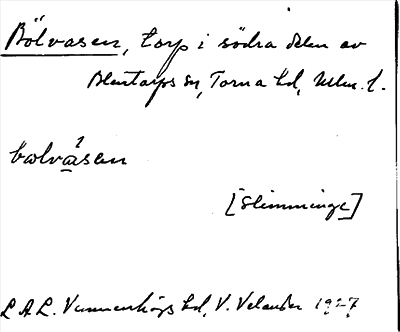 Bölvasen, torp i södra delen av
Blentarps sn, Torna hd, Mlm. l.
bœlvásen
[Slimminge]
L.A.L. Vemmenhögs hd, V. Velander 1927